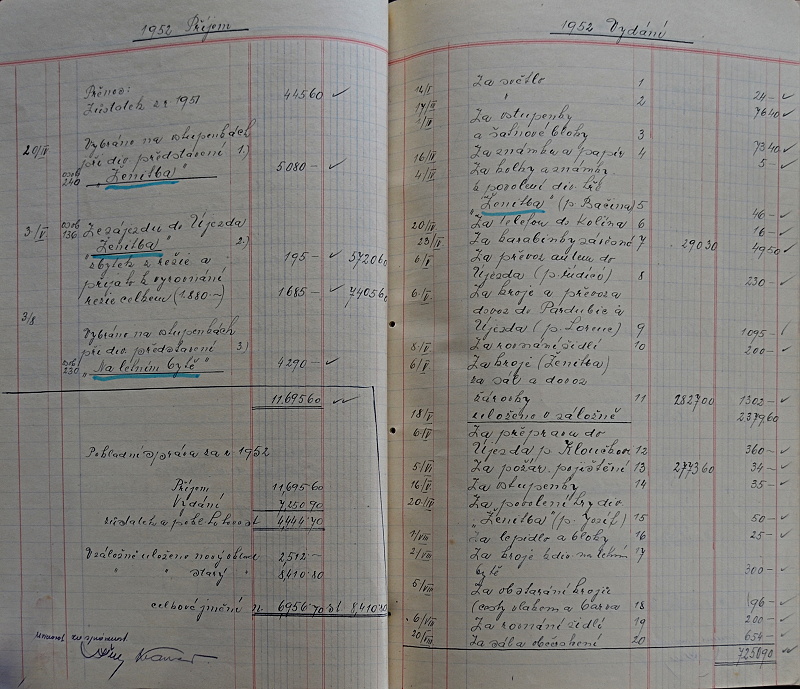 1952 Příjem
Přenos:
Zůstatek z r. 1951 445 60
20/IV Vybráno na vstupenkách
při div. představení 1.)
osob 240 "Ženitba" 5080 —
3/V osob 136 Ze zájezdu do Újezda
"Ženitba" 2.)
zbytek z režie a 195 — 5720 60
přijato k vyrovnání
režie celkem (1.880 —) 1685 — 7405 60
3/8
Vybráno na vstupenkách
při div. představení 3)
osob 230 "Na letním bytě" 4290 —
11.695 60
Pokladní zpráva za r. 1952
Příjem 11,695.60
Vydání 7,250 90
zůstatek a pokl. hotovost 4,444 70
V záložně uloženo nový 2,512 —
" " starý 8,410 80
celkové jmění n. 6956 70 st. 8,410 80
1952 Vydání
14/I Za světlo 1 24 —
17/III " 2 76 40
1/IV Za vstupenky
a šatnové bloky 3 73 40
16/IV Za známku a papír 4 5 —
4/IV Za kolky a známky
k povolení div. hře
"Ženitba" (p. Bačina) 5 46 —
20/IV Za telefon do Kolína 6 16 —
23/IV Za 7 290 30 49 50
6/V Za převoz autem do
Újezda (p. řidiči) 8 230 —
6/V Za kroje a převoz a
dovoz do Pardubic a
Újezda (p. Lorenc) 9 1095 —
8/V Za rovnání židlí 10 200 —
6/V Za kroje (Ženitba)
za sál a dovoz
žárovky 11 2827 00 1302 —
18/V uloženo v záložně 2379 60
6/V Za přepravu do
Újezda p. Kloučkov 12 360 —
5/VI Za požár. pojištění 13 2773 60 34 —
16/V Za vstupenky 14 35 —
20/IV Za povolení hry div.
"Ženitba" (p. Jozíf) 15 50 —
1/VIII Za lepidlo a bloky 16 25 —
2/VIII Za kroje k div. na letním 17
bytě 300 —
5/VIII Za obstarání krojů
(cesty vlakem a barva 18 96 —
6/VIII Za rovnání židlí 19 200 —
20/VIII Za sála občerstvení 20 654 —
7250 90